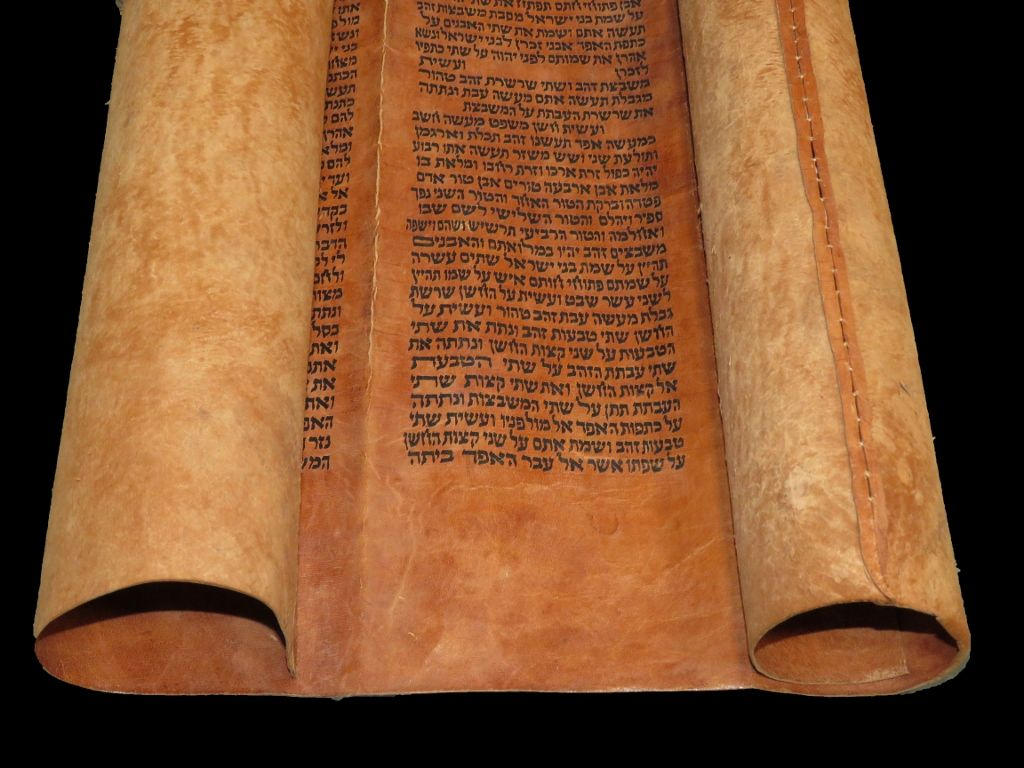 אבן פתוחי חתם תפתח את שתי
על שמת בני ישראל מסבת משבצות זהב
תעשה אתם ושמת את שתי האבנים על
כתפת האפד אבני זכרן לבני ישראל ונשא
אהרן את שמותם לפני יהוה על שתי כתפיו
לזכרן ועשית
משבצת זהב ושתי שרשרת זהב טהור
מגבלת תעשה אתם מעשה עבת ונתתה
את שרשרת העבתת על המשבצת
ועשית חשן משפט מעשה חשב
כמעשה אפד תעשנו זהב תכלת וארגמן
ותולעת שני ושש משזר תעשה אתו רבוע
יהיה כפול זרת ארכו וזרת רחבו ומלאת בו
מלאת אבן ארבעה טורים אבן טור אדם
פטדה וברקת הטור האחד והטור השני נפך
ספיר ויהלם והטור השלישי לשם שבו
ואחלמה והטור הרביעי תרשיש ושהם וישפה
משבצים זהב יהיו במלואתם והאבנים
תהיין על שמת בני ישראל שתים עשרה
על שמתם פתוחי חותם איש על שמו תהיין
לשני עשר שבט ועשית על החשן שרשת
גבלת מעשה עבת זהב טהור ועשית על
החשן שתי טבעות זהב ונתת את שתי
הטבעות על שני קצות החשן ונתתה את
שתי עבתת הזהב על שתי הטבעת
אל קצות החשן ואת שתי קצות שתי
העבתת תתן על שתי המשבצות ונתתה
על כתפות האפד אל מול פניו ועשית שתי
טבעות זהב ושמת אתם על שני קצות החשן
על שפתו אשר אל עבר האפד ביתה